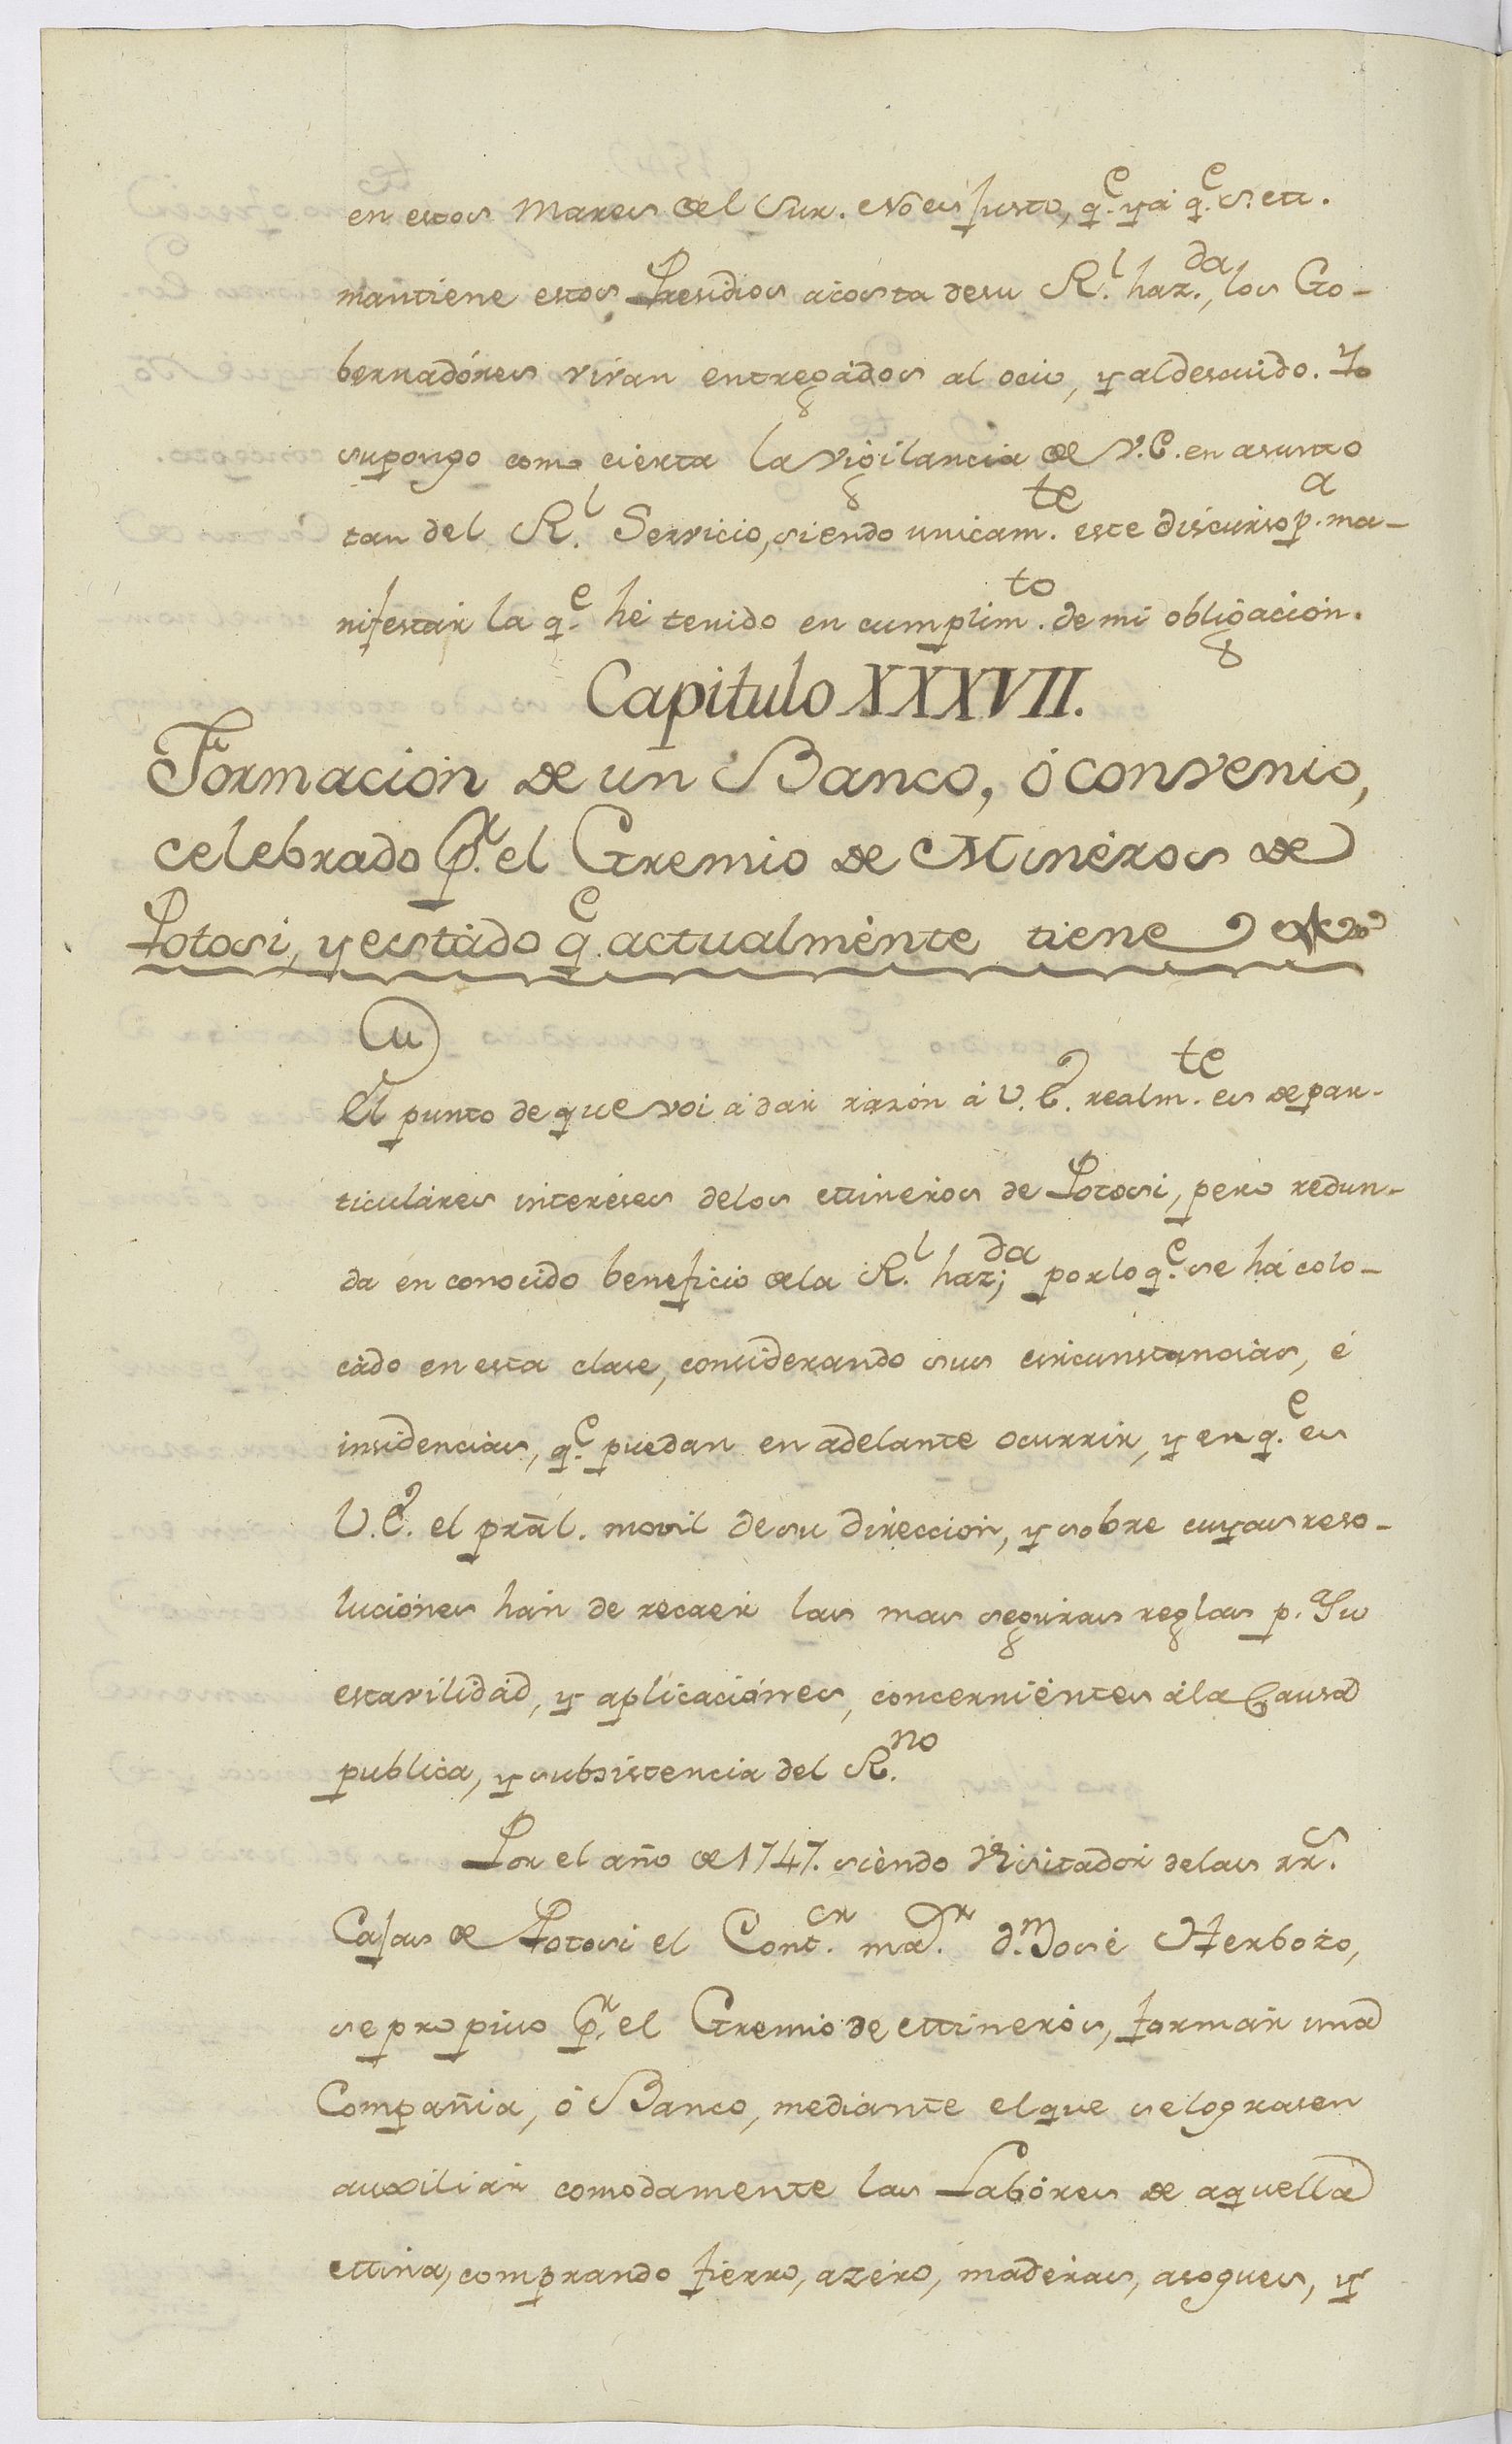 en estos Mares del Sur. No es justo, q.e ya q.e S. M.
mantiene estos Presidios a costa de su R.l haz.da, los Go-
bernadóres vivan entregados al ocio, y al descuido. Yo
supongo como cierta la vigilancia de V.E. en asunto
tan del R.l Servicio, siendo unicam.te este discurso p.a ma-
nifestar la q.e hé tenido en cumplim.to de mi obligacion.
Capitulo XXXVII.
Formación de un Banco, ó convenio,
celebrado p.r el Gremio de Minéros de
Potosi, y estádo q.e actualménte tiene
El punto de que voi á dar razón á V.E. realm.te es de par-
ticuláres interéses de los Mineros de Potosi, pero redun-
da en conocido beneficio de la R.l haz.da; por lo q.e se há colo-
cádo en esta clase, considerando sus circunstancias, é
insidencias, q.e puedan en adelante ocurrir, y en q.e es
V.E. el prãl. movil de su direccion, y sobre cuyas reso-
luciónes hán de recaer las mas seguras reglas p.a Su
estavilidád, y aplicaciónes, concerniéntes á la Causa
publica, y subsistencia del R.no
Por el año de 1747. siendo Visitador de las rr.s
Cajas de Potosi el Cont.or ma.or d.n José Herboso,
se propuso p.r el Gremio de Mineros, formar una
Compañia, ó Banco, mediante el que se lograsen
auxiliár comodamente las Labóres de aquella
Mina, comprando fierro, azéro, madéras, asogues, y